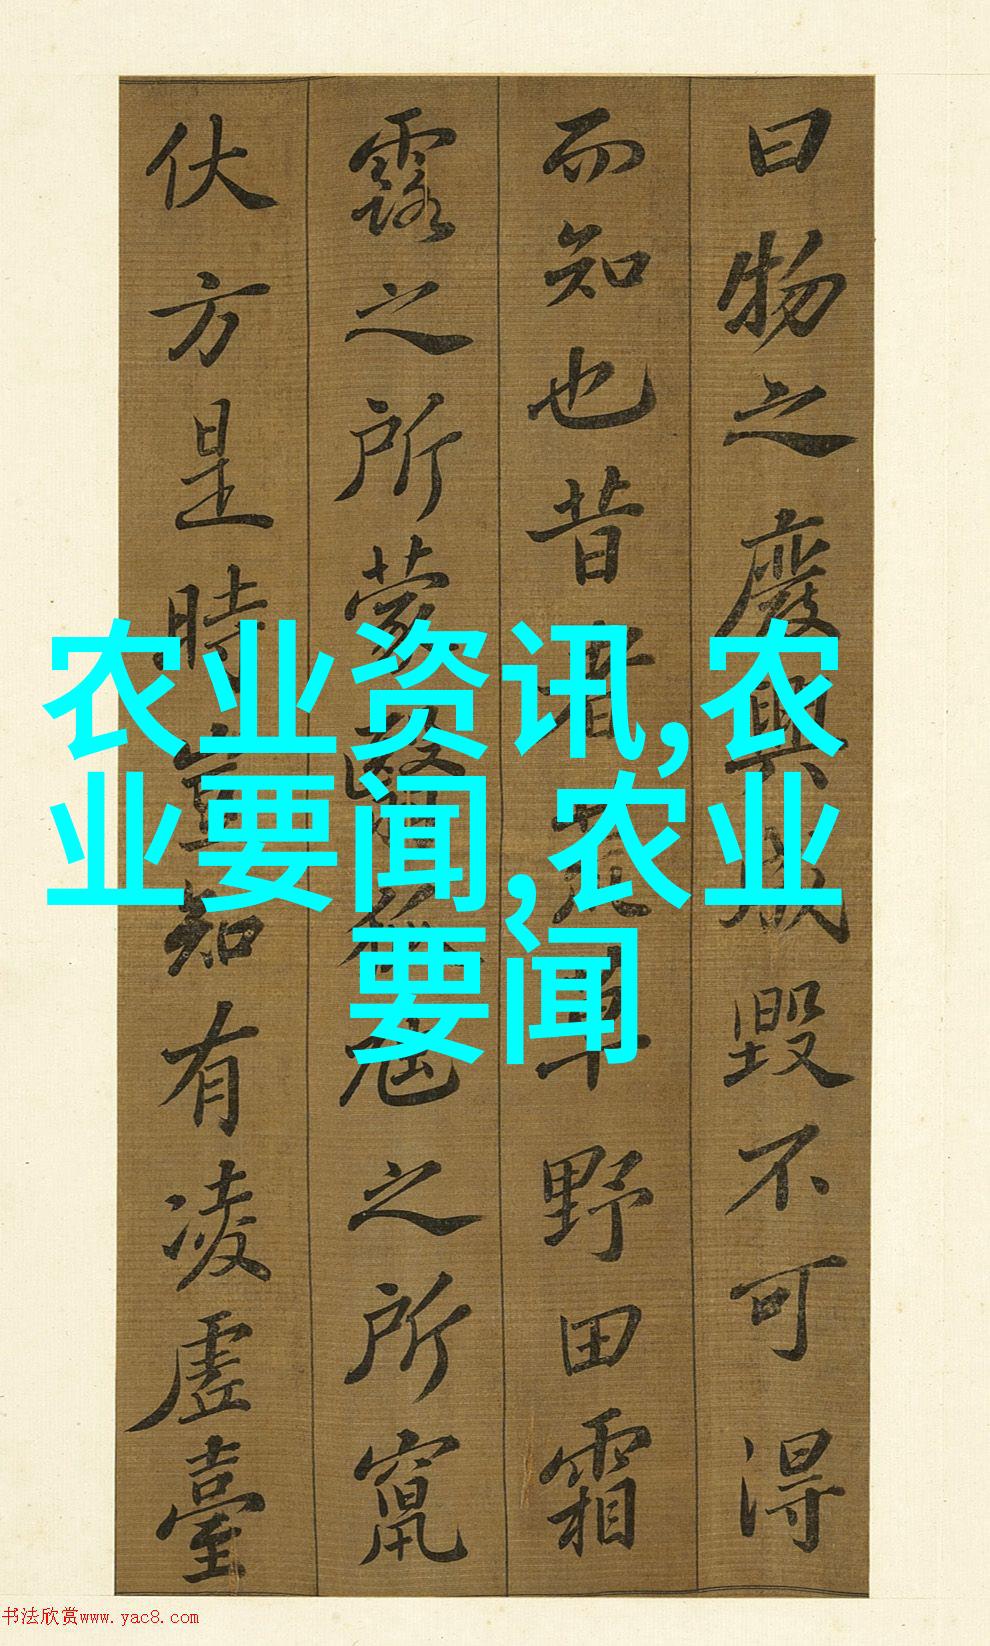 曰物之廢興成毀不可得
而知也昔者荒草野田霜
露之所蒙翳狐虺之所竄
伏方是時豈知有凌虛臺
农业资讯,农
业要闻,农业
要闻
书法欣赏www.yac8.com